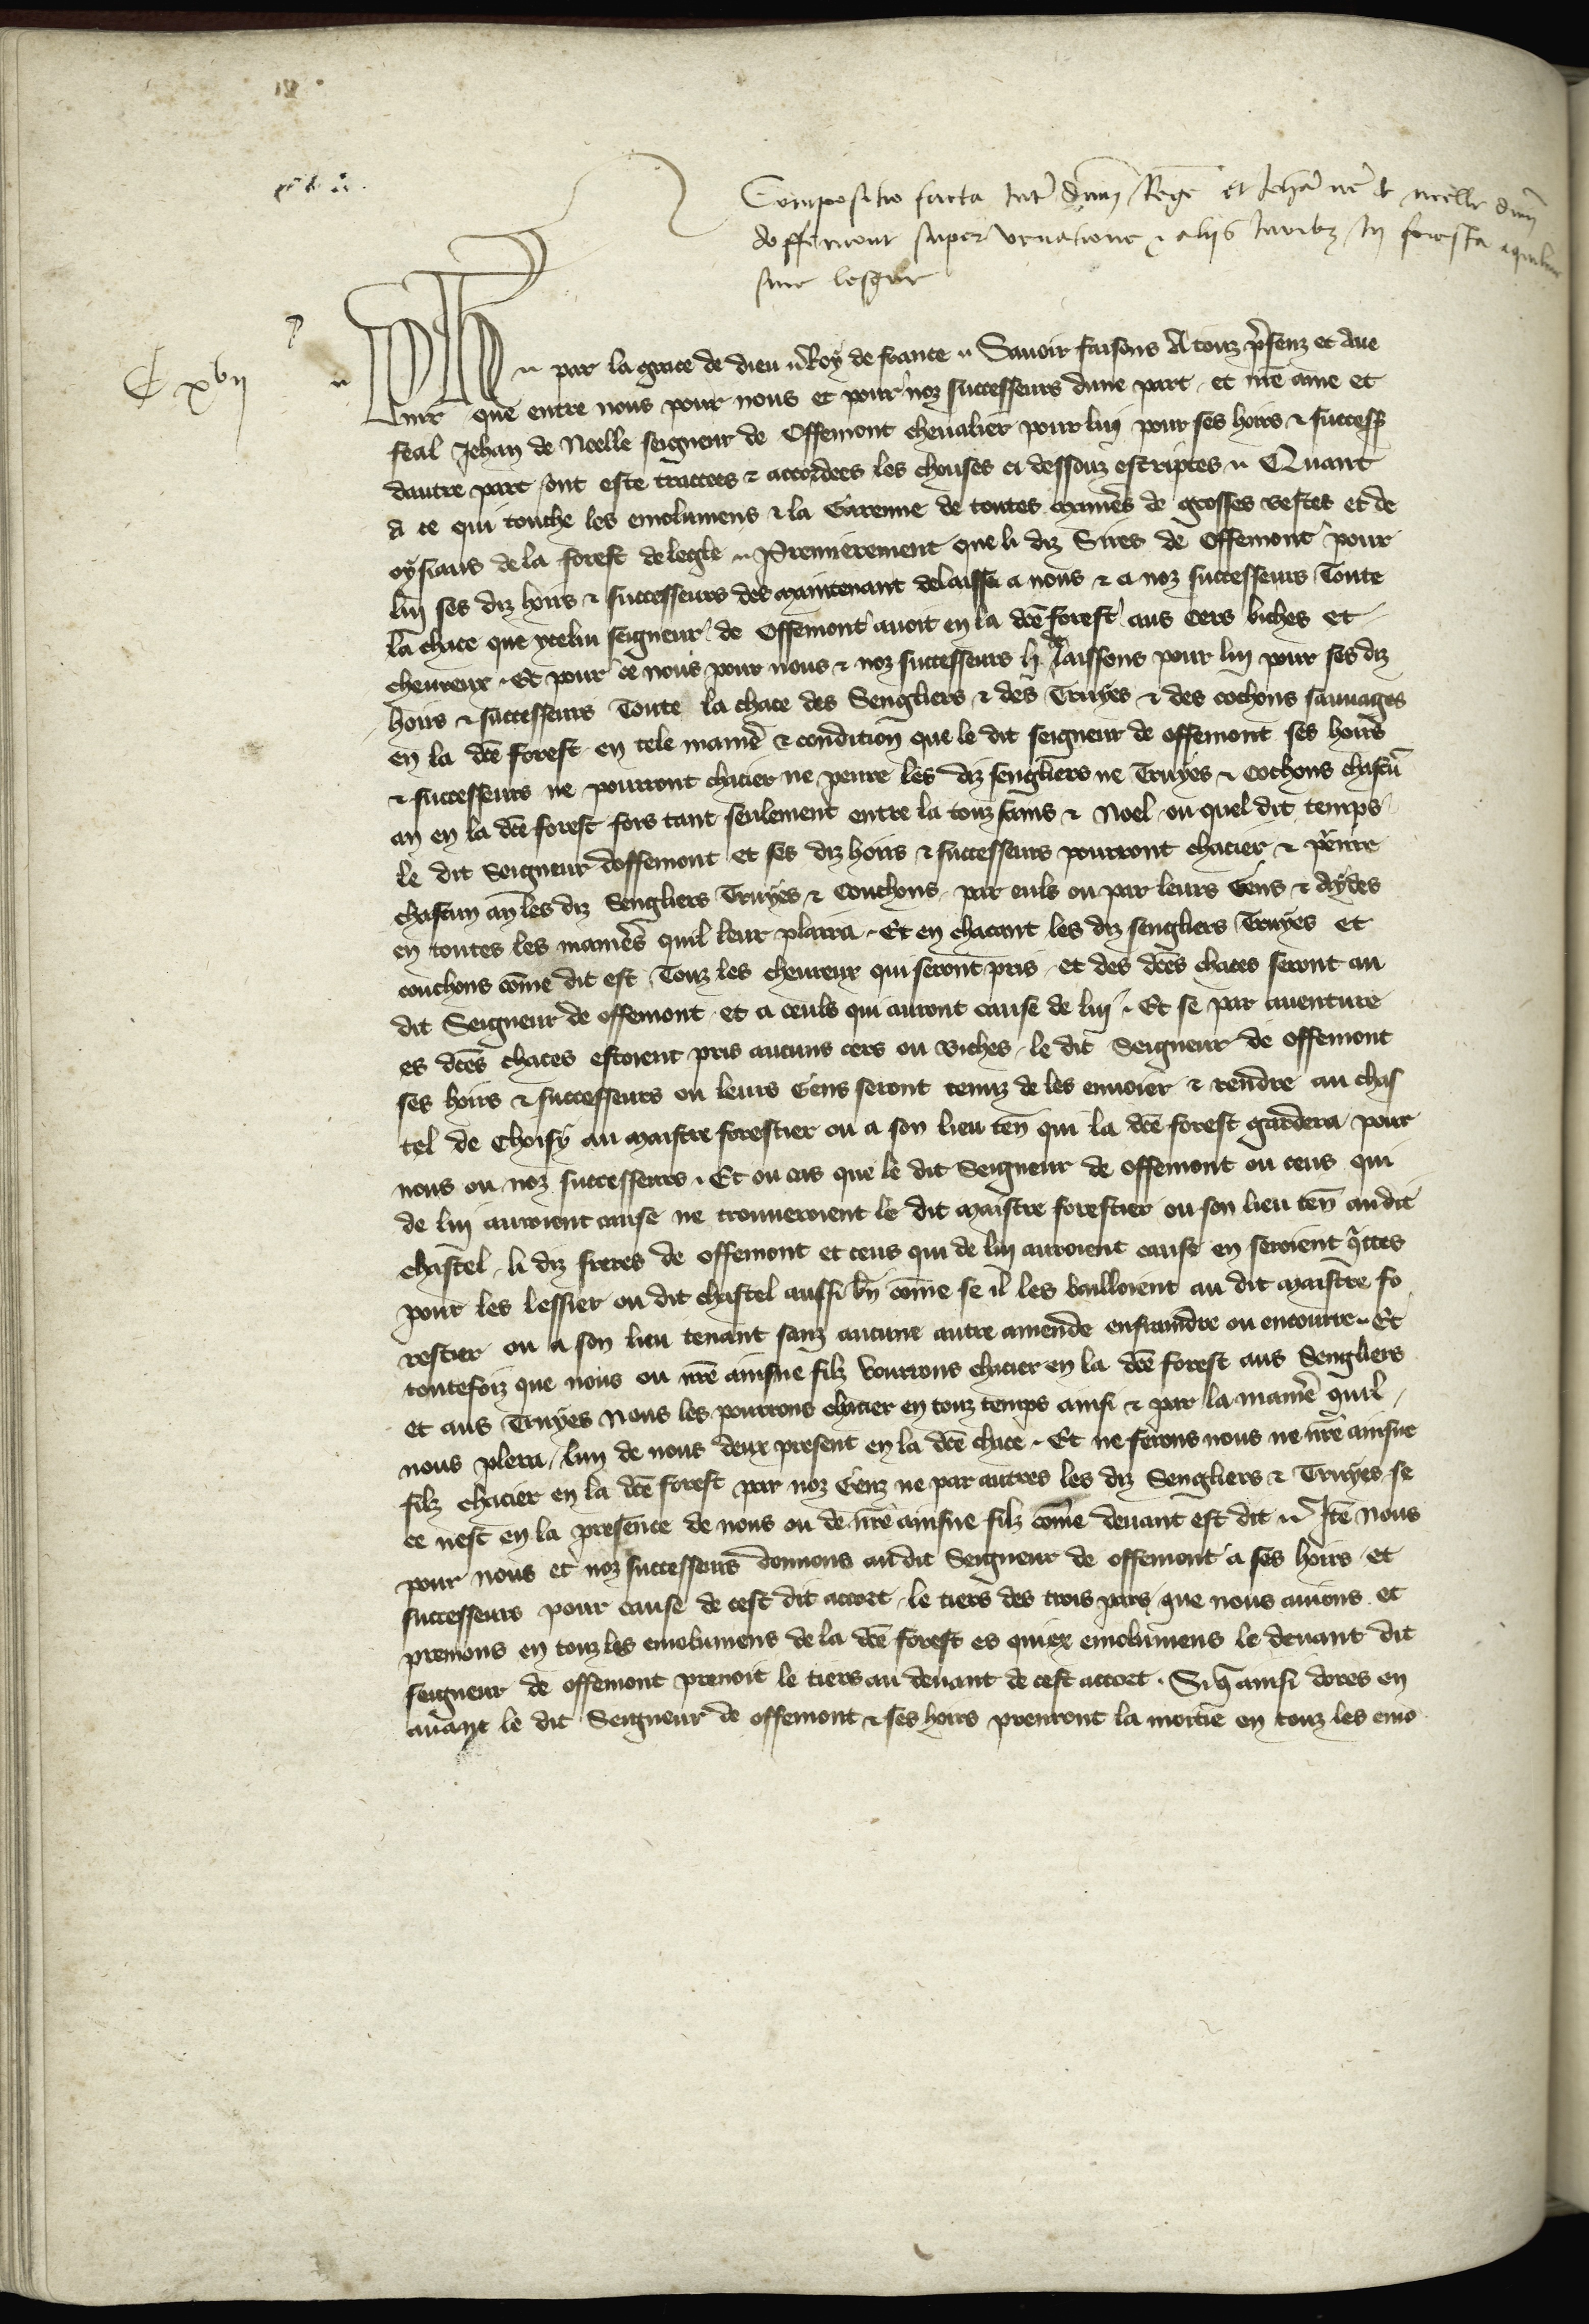 Compositio facta int̄ dnm̄ Regē et Jehā de Neelle dnm̄
doffemont super venatione ⁊ aliis Juribꝫ in foresta aquile
siue lesgue
C xvii
Ph par la grace de dieu Roy de france Sauoir faisons A touz p̄senz et aue
nir que entre nous pour nous et pour noz successeurs dune part et nrē ame et
feal Jehan de Neelle seigneur de Offemont cheualier pour luy pour ses hoirs ⁊ success
dautre part ont este traictees ⁊ accordees les chouses ci dessouz escriptes Quant
a ce qui touche les emolumens ⁊ la Garenne de toutes manieˀs de grosses bestes et de
oysiaus de la forest de legle Premierement que li diz Sires de Offemont pour
luy ses diz hoirs ⁊ successeurs des maintenant delaisse a nous ⁊ a noz successeurs Toute
la chace que ycelui seigneur de Offemont auoit en la dcē forest aus cers biches et
cheureux Et pour ce nous pour nous ⁊ noz successeurs li delaissons pour luy pour ses diz
hoirs ⁊ successeurs Toute la chace des Sengliers ⁊ des Truyes ⁊ des cochons sauuages
en la dcē forest en tele manieˀ ⁊ condition que le dit seigneur de offemont ses hoirs
⁊ successeurs ne pourront chacier ne penre les diz sengliers ne Truyes ⁊ Cochons chascū
an en la dcē forest fors tant seulement entre la touz sains ⁊ Noel ou quel dit temps
le dit Seigneur doffemont et ses diz hoirs ⁊ successeurs pourront chacier ⁊ p̄enre
chascun an les diz Sengliers Truyes ⁊ Couchons par euls ou par leurs Gens ⁊ Aydes
en toutes les manieˀs quil leur plaira Et en chacant les diz sengliers Truyes et
couchons cōme dit est Touz les cheureux qui seront pris et des dcēs chaces seront au
dit Seigneur de offemont et a ceuls qui auront cause de luy Et se par auenture
es dcēs chaces estoient pris aucuns cers ou biches le dit Seigneur de offemont
ses hoirs ⁊ successeurs ou leurs Gens seront tenuz de les enuoier ⁊ rendre au chas
tel de Choisy au maistre forestier ou a son lieu teñ qui la dcē forest gardera pour
nous ou noz successeurs Et ou cas que le dit Seigneur de offemont ou ceus qui
de luy auroient cause ne trouueroient le dit maistre forestier ou son lieu teñ audit
chastel li diz sires de offemont et ceus qui de luy auroient cause en seroient qⁱttes
pour les lessier ou dit chastel aussi bn̄ cōme se il les bailloient au dit maistre fo
restier ou a son lieu tenant sanz aucune autre amende enfraindre ou encourre Et
toutefoiz que nous ou nrē ainsne filz vourrons chacier en la dcē forest aus Sengliers
et aus Truyes Nous les pourrons chacier en touz temps ainsi ⁊ par la manieˀ quil
nous plera lun de nous deux present en la dcē chace Et ne ferons nous ne nrē ainsne
filz chacier en la dcē forest par noz Genz ne par autres les diz Sengliers ⁊ Truyes se
ce nest en la presence de nous ou de nrē ainsne filz cōme deuant est dit Itē Nous
pour nous et noz successeurs donnons audit Seigneur de offemont a ses hoirs et
successeurs pour cause de cest dit accort le tiers des trois pars que nous auions et
premons en touz les emolumens de la dcē forest es quiex emolumens le deuant dit
seigneur de offemont prenoit le tiers au deuant de cest accort Si q̄ ainsi dores en
auant le dit Seigneur de offemont ⁊ ses hoirs prenront la moitie en touz les emo